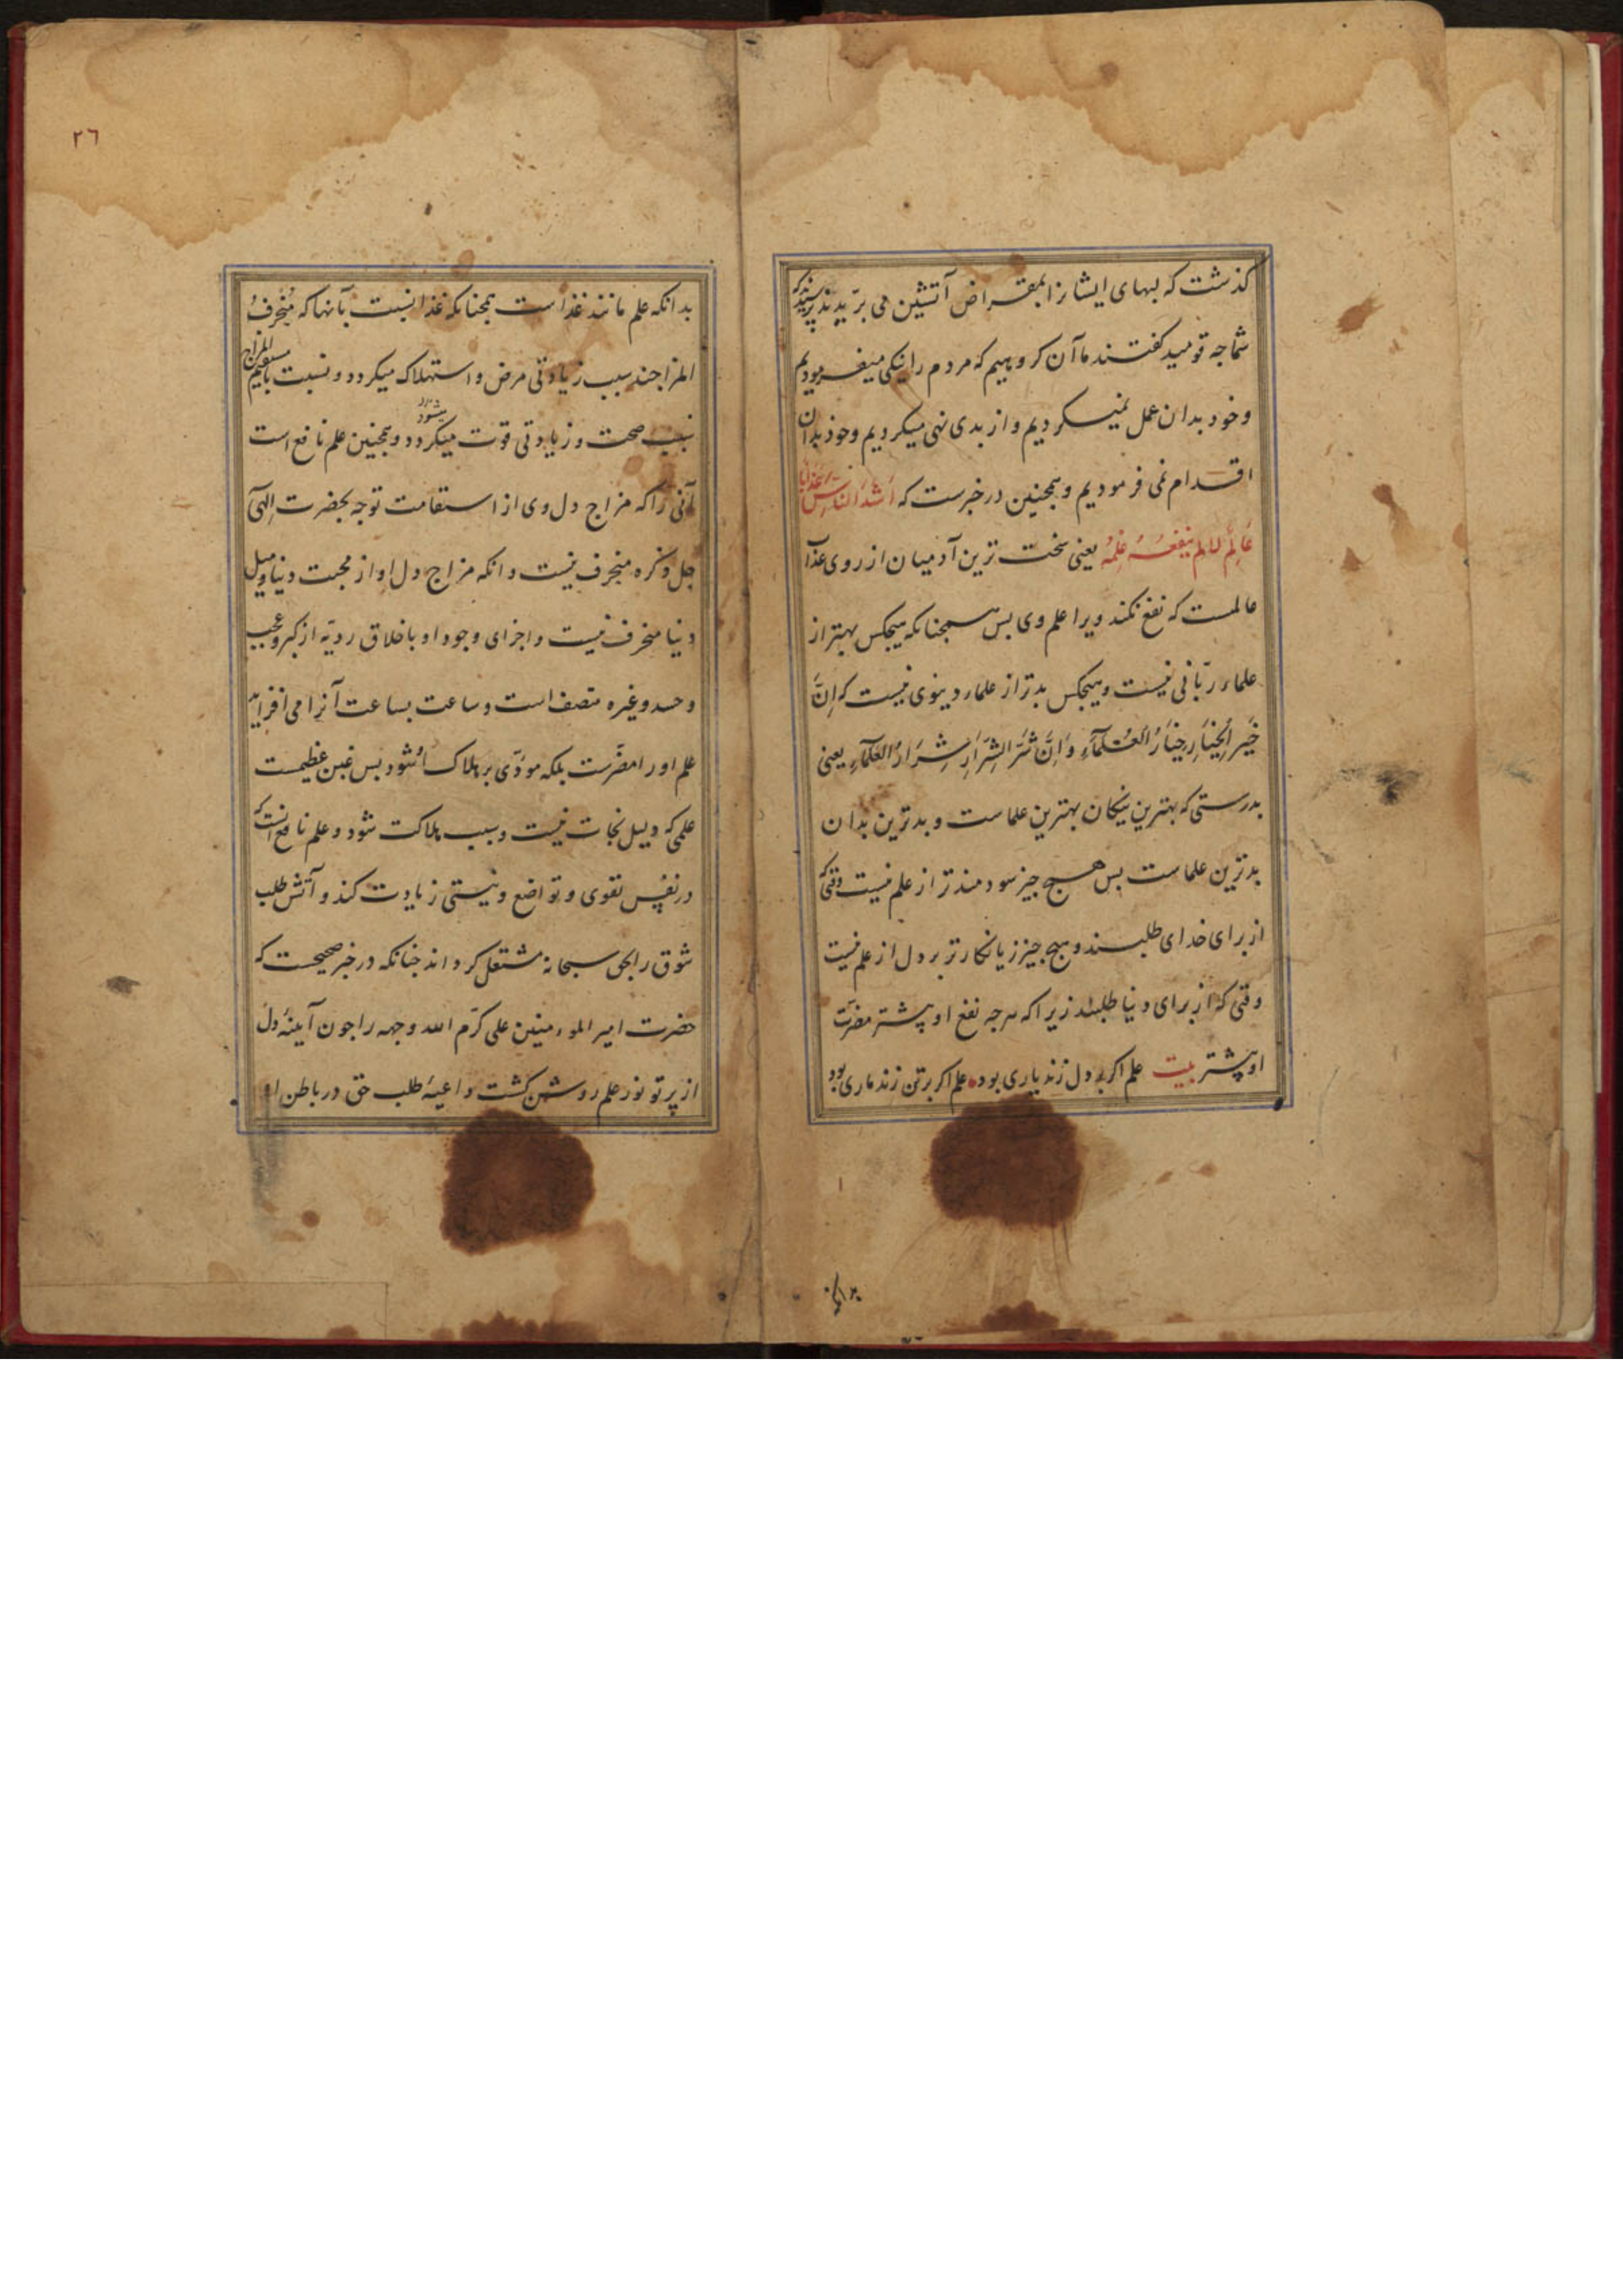 کذشت که لبهای ایشانرا بمقراض آتشین می بریدند پرسیدند که
شما جه قومید کفتند ما آن کروهیم که مردم را نیکی میفرمودیم
وخود بدان عمل نمیکردیم و از بدی نهی میکردیم وخود بدان
اقدام نمی فرمودیم وهمجنین در خبرست که اَشَدُّ النَّاسِ عَذَابًا
عَالِمٌ لَمْ یَنْفَعْهُ عِلْمُهُ یعنی سخت ترین آدمیان از روی عذاب
عالمست که نفع نکند ویرا علم وی بس همجنانکه هیجکس بهتر از
علماء ربّانی نیست وهیجکس بدتر از علماء دینوی نیست که اِنَّ
خَیْرَ الْخِیَارِ خِیَارُ الْعُلَمَآءِ وَاِنَّ شَرَّ الشِّرَارِ شِرَارُ الْعُلَمَآءِ یعنی
بدرستی که بهترین نیکان بهترین علماست و بدترین بدان
بدترین علماست بس هیج جیز سودمندتر از علم نیست وقتی که
از برای خدای طلبند وهیج جیز زیانکارتر بر دل از علم نیست
وقتی که از برای دنیا طلبند زیرا که هرجه نفع او بیشتر مضرّت
او بیشتر بیت علم اکر بر دل زند یاری بود علم اکر برتن زند ماری بود
بدانکه
٢٦
بدانکه علم مانند غذاست همجنانکه غذا نسبت بآنها که منحرف
المزاجند سبب زیادتی مرض و استهلاک میکردد و نسبت با مستقیم المزاج
سبب صحت و زیادتی قوت میکردد میشود وهمجنین علم نافع است
آنی را که مزاج دل وی از استقامت توجه بحضرت الهی
جل ذکره منحرف نیست وانکه مزاج دل او از محبت دنیا ومیل
دنیا منحرف نیست و اجزای وجود او با خلاق ردیّه از کبر وعجب
وحسد وغیره متصف است وساعت بساعت آنرا می افزاید
علم اورا مضرّست بلکه مودّی بر هلاک او شود بس غبن عظیمست
علمی که دلیل نجات نیست وسبب هلاکت شود وعلم نافع آنست که
در نفس تقوی و تواضع ونیستی زیادت کند و آتش طلب
شوق را بحق سبحانه مشتعل کرداند جنانکه در خبر صحیحست که
حضرت امیر المومنین علی کرّم الله وجهه را جون آیینهٔ دل
از پرتو نور علم روشن کشت داعیهٔ طلب حق در باطن او